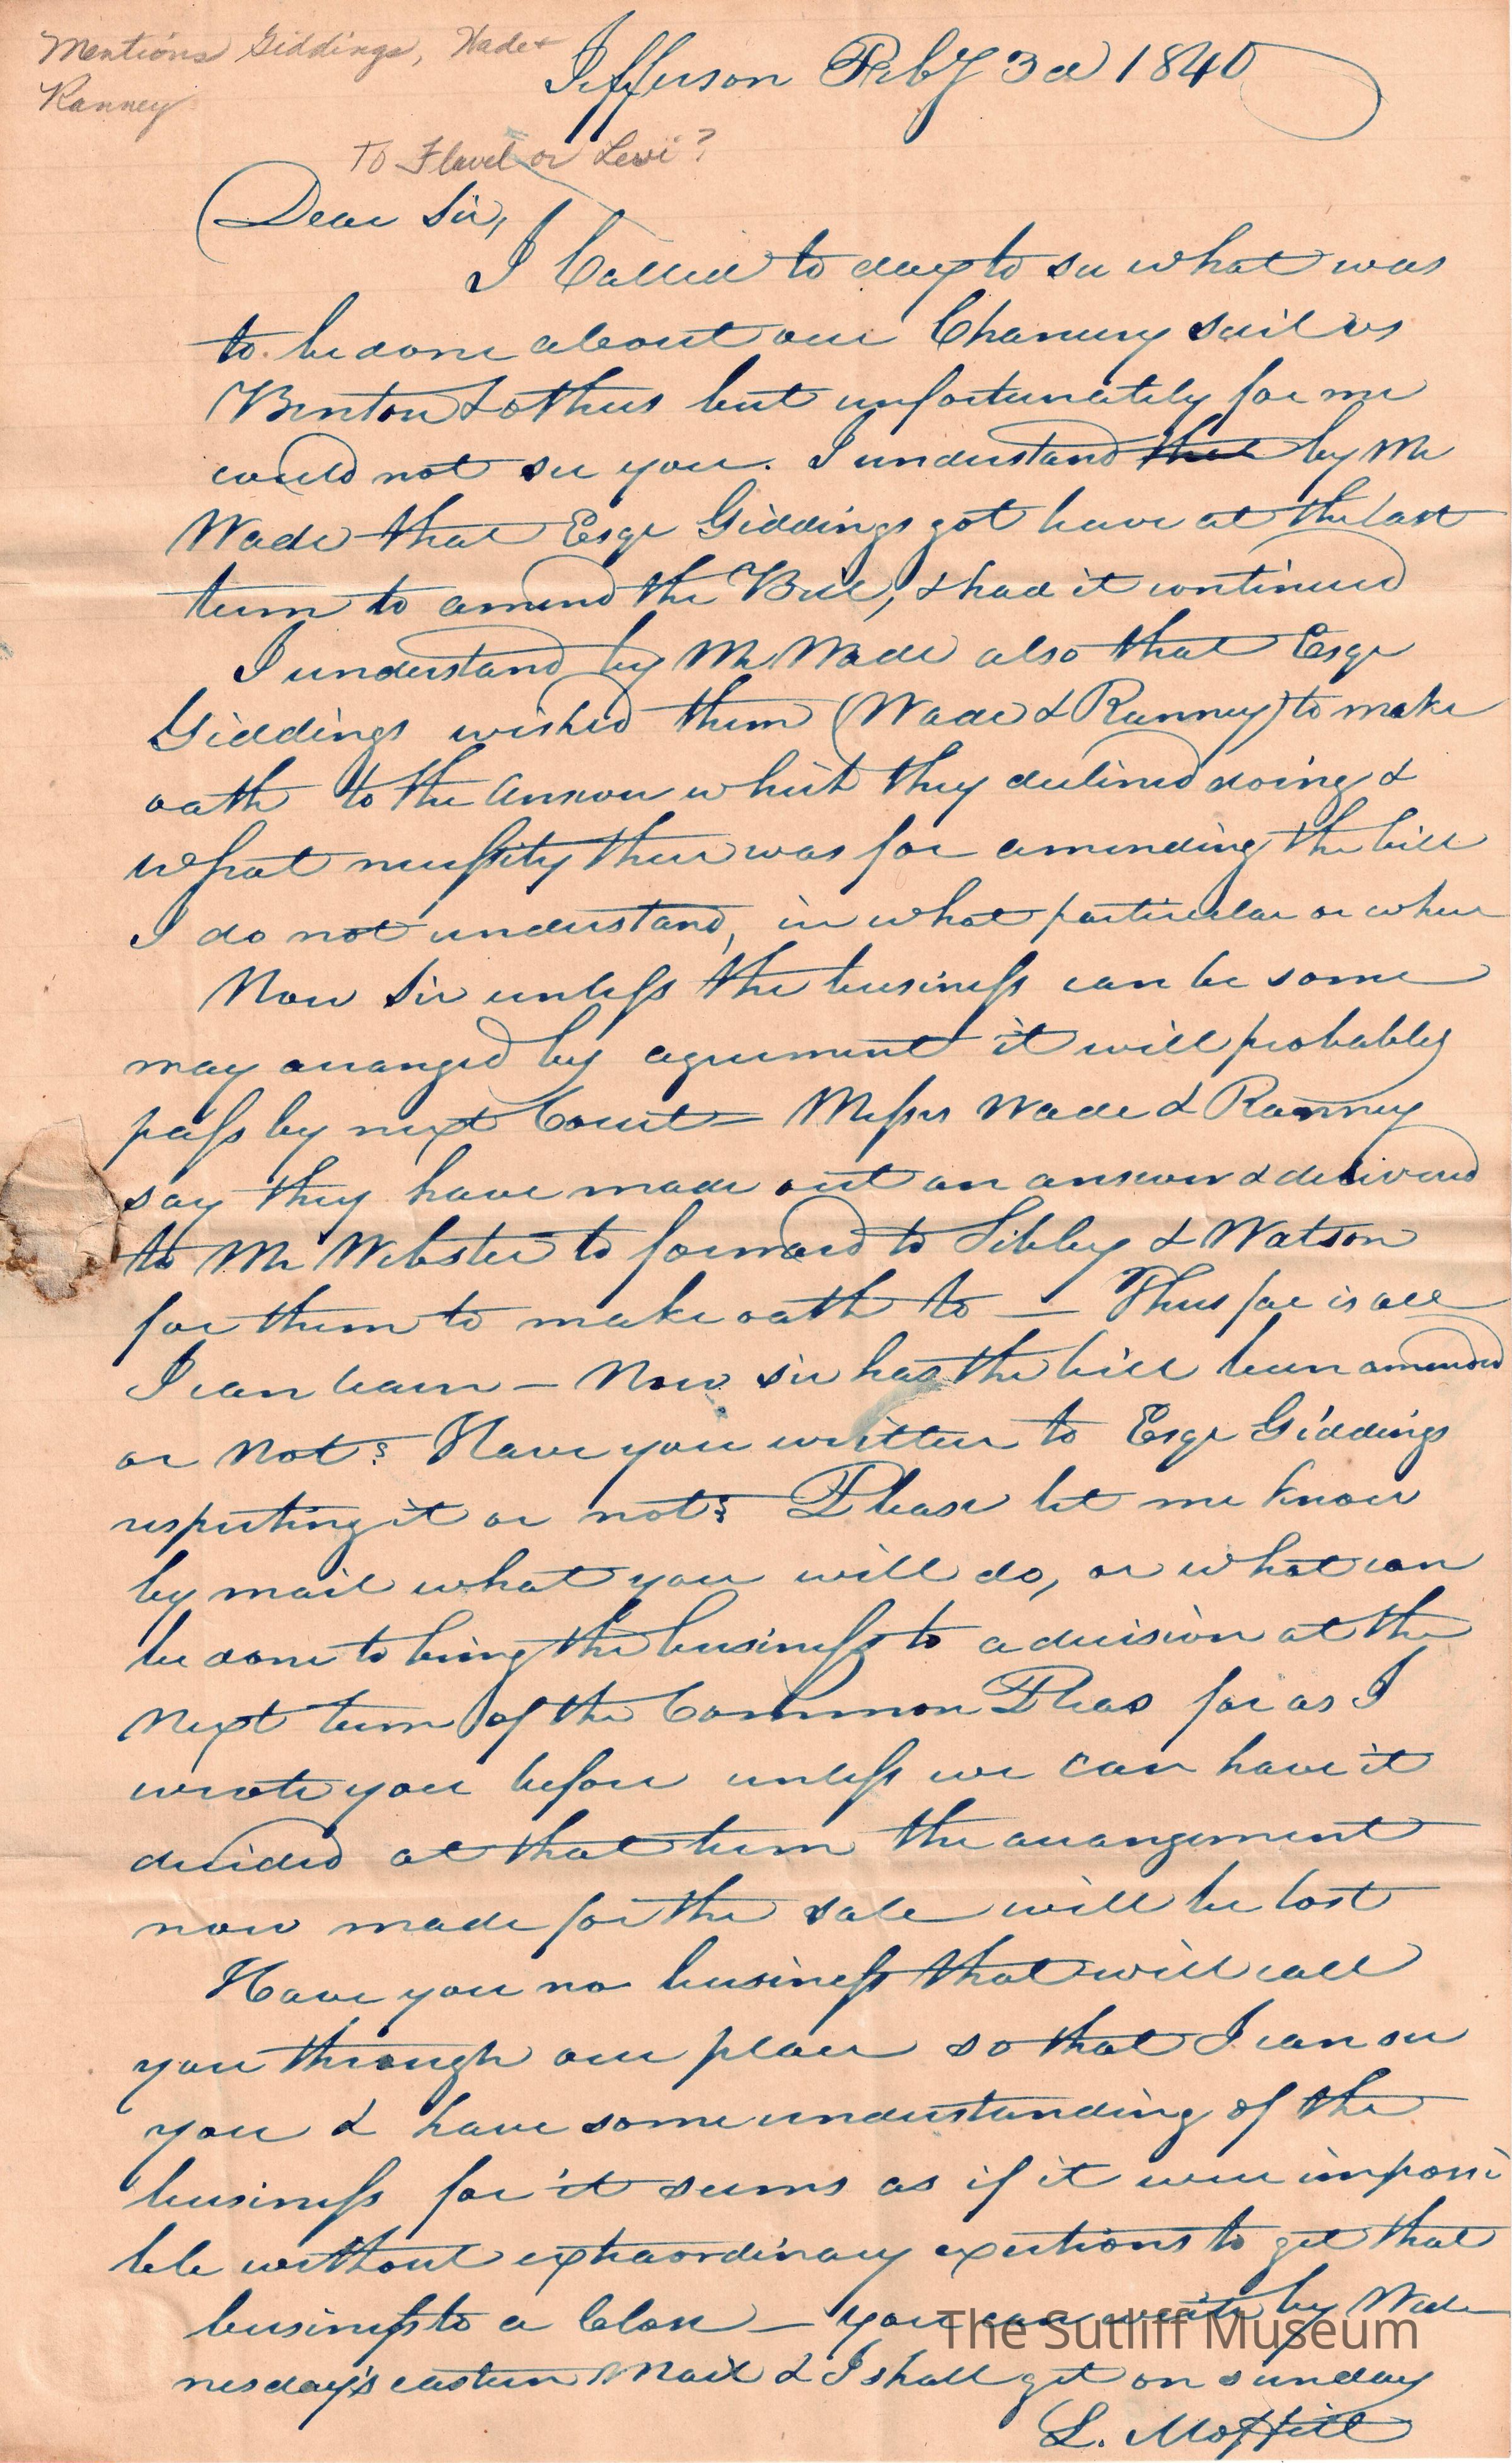 Mentions Giddings, Wade +
Ranney
Jefferson Feby 3d 1840
To Flavel or Levi?
Dear Sir,
I Called to day to see what was
to be done about our Chancery suit vs
Benton & others but unfortunately for me
could not see you. I understand that by Mr
Wade that Esqr Giddings got leave at the last
term to amend the Bill, & had it continued
I understand by Mr Wade also that Esqr
Giddings wished them (Wade & Ranney) to make
oath to the answer which they declined doing &
what necessity there was for amending the bill
I do not understand, in what particular or where
Now Sir unless the business can be some
way arranged by agreement it will probably
pass by next Court – Messrs Wade & Ranney
say they have made out an answer & delivered
to Mr Webster to forward to Sibley & Watson
for them to make oath to – Thus far is all
I can learn – Now sir has the bill been amended
or Not? Have you written to Esqr Giddings
respecting it or not? Please let me know
by mail what you will do, or what can
be done to bring the business to a decision at the
Next term of the Common Pleas for as I
wrote you before unless we can have it
decided at that term the arrangement
now made for the sale will be lost
Have you no business that will call
you through our place so that I can see
you & have some understanding of the
business for it seems as if it were impossi
ble without extraordinary exertions to get that
business to a Close – you can write by Wed
nesday's eastern Mail & I shall get on sunday
L. Moffitt
The Sutliff Museum